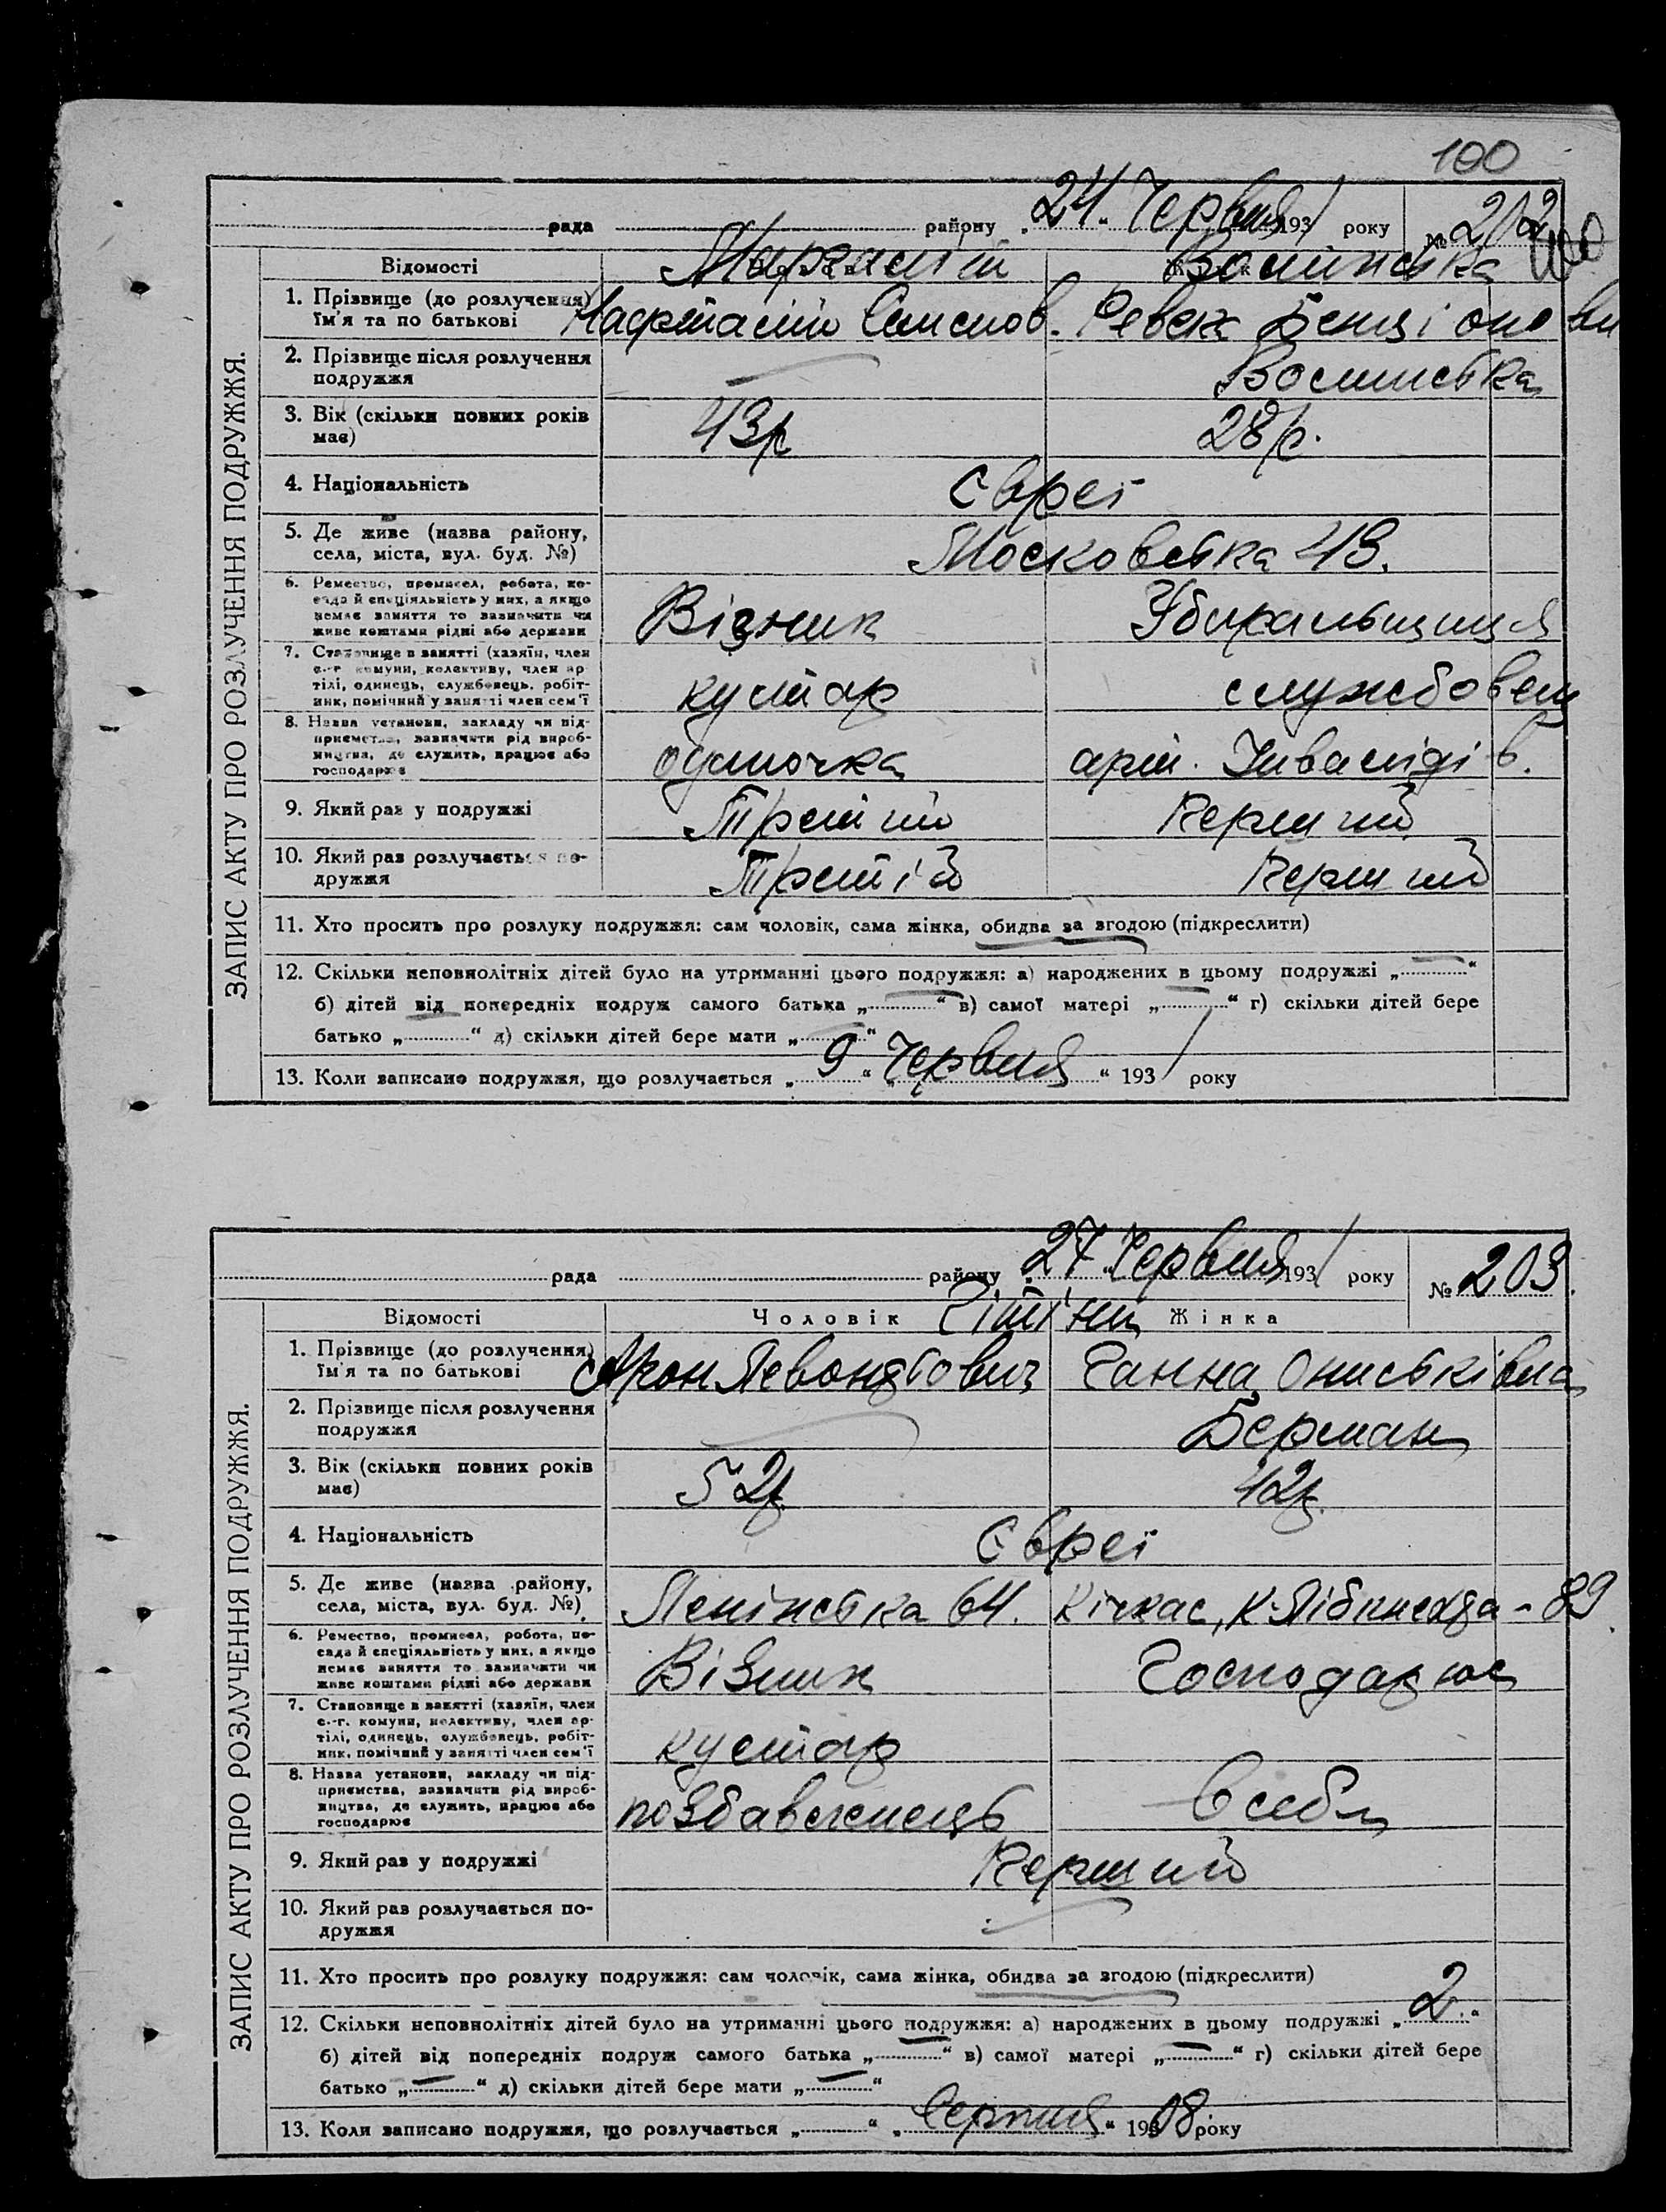 100
рада району „24“ Червня 1931 року № 202
100
Відомості Маргаліт Волинська
1. Прізвище (до розлучення) Нафталій Самслов. Ревека Бенціоновн
ім'я та по батькові
2. Прізвище після розлучення Волинська
подружжя
3. Вік (скільки повних років 43р 28р.
має)
4. Національність Євреї
5. Де живе (назва району, Московська 43.
села, міста, вул. буд. №)
6. Ремество, промисел, робота, по-
сада й спеціяльність у них, а якщо Візник Убиральщиця
немає заняття то зазначити чи
живе коштами рідні або держави
7. Становище в занятті (хазяїн, член
с.-г. комуни, колективу, член ар-
тілі, одинець, службовець, робіт- кустар службовец
ник, помічний у занятті член сем'ї
8. Назва установи, закладу чи під-
приємства, зазначити рід вироб-
ництва, де служить, працює або одиночка арт. Інвалідів.
господарює
9. Який раз у подружжі Третий Первий
10. Який раз розлучається по- Третій Первий
дружжя
11. Хто просить про розлуку подружжя: сам чоловік, сама жінка, обидва за згодою (підкреслити)
12. Скільки неповнолітніх дітей було на утриманні цього подружжя: а) народжених в цьому подружжі „ “
б) дітей від попередніх подруж самого батька „ “ в) самої матері „ “ г) скільки дітей бере
батько „ “ д) скільки дітей бере мати „ “
13. Коли записано подружжя, що розлучається „ 9 “ „ Червня “ 1931 року
ЗАПИС АКТУ ПРО РОЗЛУЧЕННЯ ПОДРУЖЖЯ.
рада району „27“ Червня 1931 року № 203.
Відомості Чоловік Жінка
1. Прізвище (до розлучення) Арон Левонтович Ганна Ониськівна
ім'я та по батькові
2. Прізвище після розлучення Берман
подружжя
3. Вік (скільки повних років 52р. 42р.
має)
4. Національність Євреї
5. Де живе (назва району, Ленінська 64. Кічкас, К. Лібкнехта - 89.
села, міста, вул. буд. №)
6. Ремество, промисел, робота, по-
сада й спеціяльність у них, а якщо Візник Господарює
немає заняття то зазначити чи
живе коштами рідні або держави
7. Становище в занятті (хазяїн, член
с.-г. комуни, колективу, член ар-
тілі, одинець, службовець, робіт- кустар
ник, помічний у занятті член сем'ї
8. Назва установи, закладу чи під-
приємства, зазначити рід вироб-
ництва, де служить, працює або позбавленець в себя
господарює
9. Який раз у подружжі Перший
10. Який раз розлучається по-
дружжя
11. Хто просить про розлуку подружжя: сам чоловік, сама жінка, обидва за згодою (підкреслити)
12. Скільки неповнолітніх дітей було на утриманні цього подружжя: а) народжених в цьому подружжі „ 2 “
б) дітей від попередніх подруж самого батька „ “ в) самої матері „ “ г) скільки дітей бере
батько „ “ д) скільки дітей бере мати „ “
13. Коли записано подружжя, що розлучається „ “ „ Серпня “ 1908 року
ЗАПИС АКТУ ПРО РОЗЛУЧЕННЯ ПОДРУЖЖЯ.